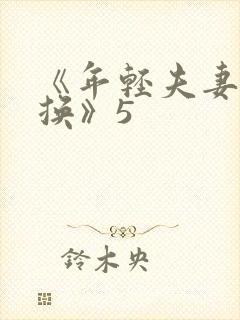 《年轻夫妻
换》5
铃木央